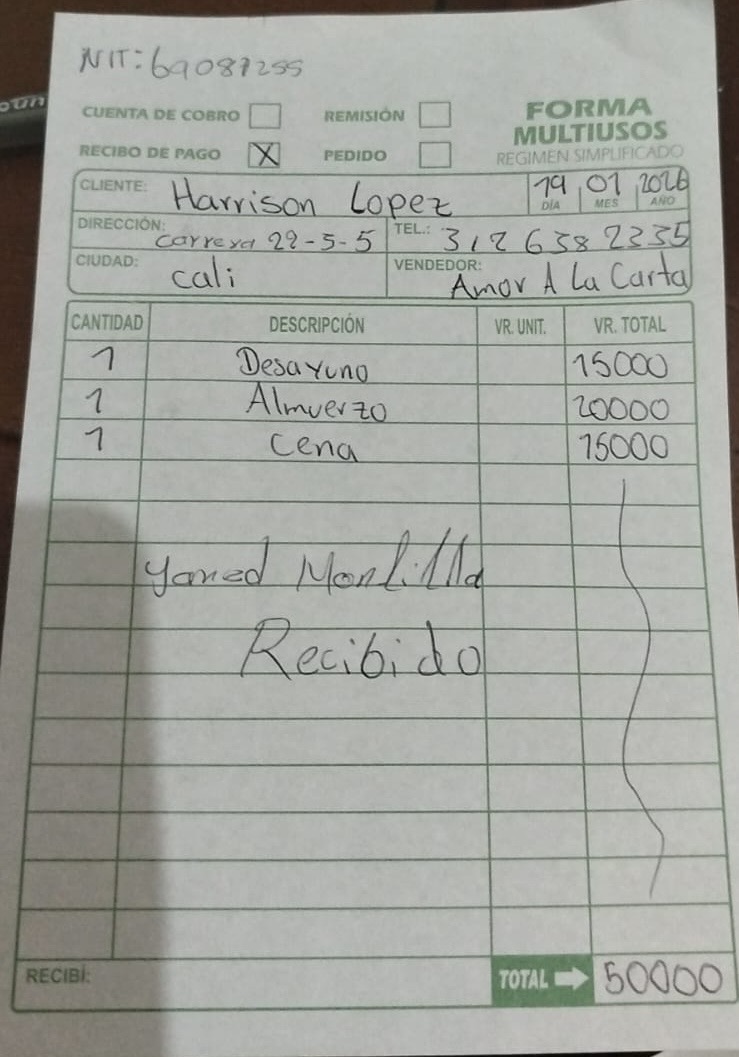 NIT: 69087255
CUENTA DE COBRO REMISIÓN FORMA
MULTIUSOS
RECIBO DE PAGO X PEDIDO REGIMEN SIMPLIFICADO
CLIENTE: Harrison Lopez 19 01 2026
DÍA MES AÑO
DIRECCIÓN: carrera 29-5-5 TEL.: 312 638 2335
CIUDAD: cali VENDEDOR: Amor A La Carta
CANTIDAD DESCRIPCIÓN VR. UNIT. VR. TOTAL
1 Desayuno 15000
1 Almuerzo 20000
1 Cena 15000
Yaned
Recibido
RECIBÍ: TOTAL 50000